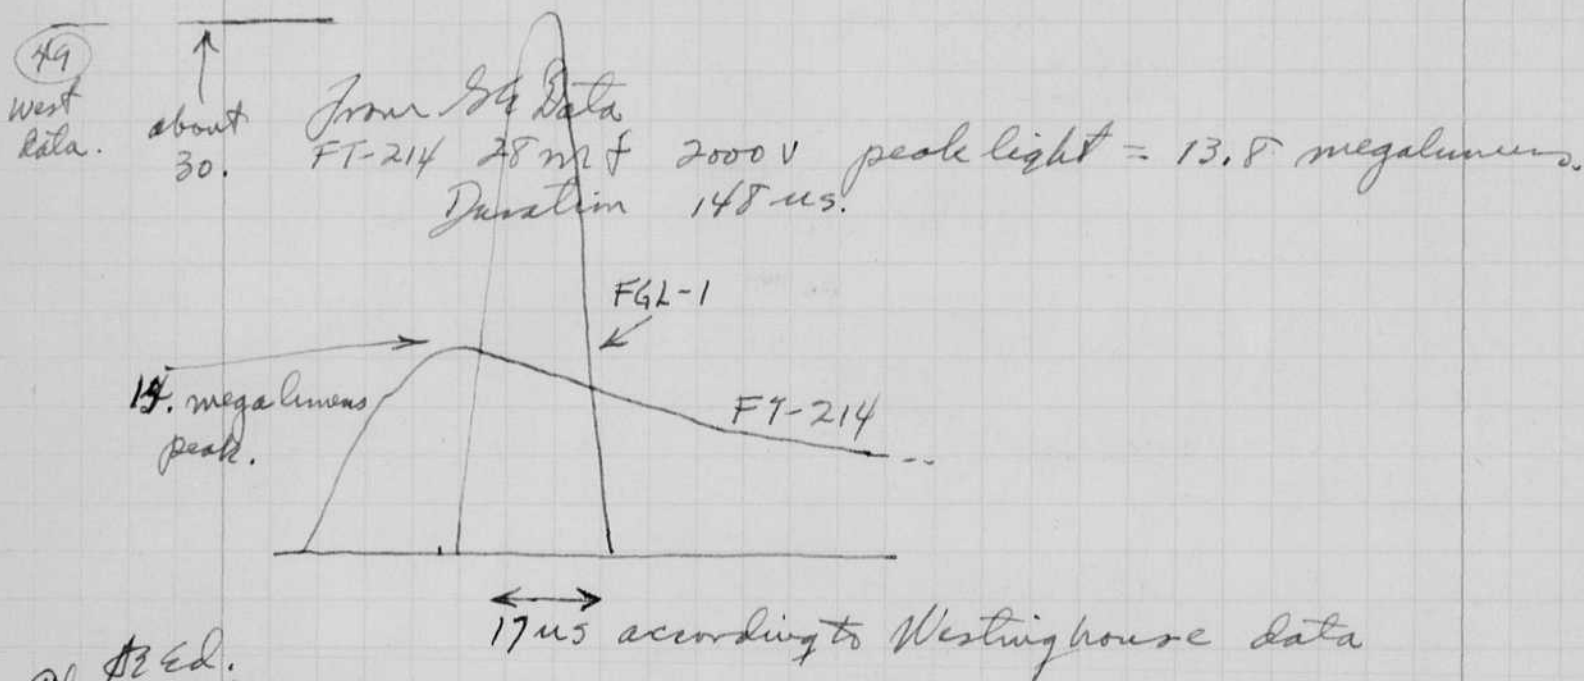 49
West
data.
about
30.
From GE Data
FT-214 28 mf 2000 V peak light = 13.8 megalumens.
Duration 148 us.
FGL-1
megalumens
peak.
FT-214
17 us according to Westinghouse data
Ed.